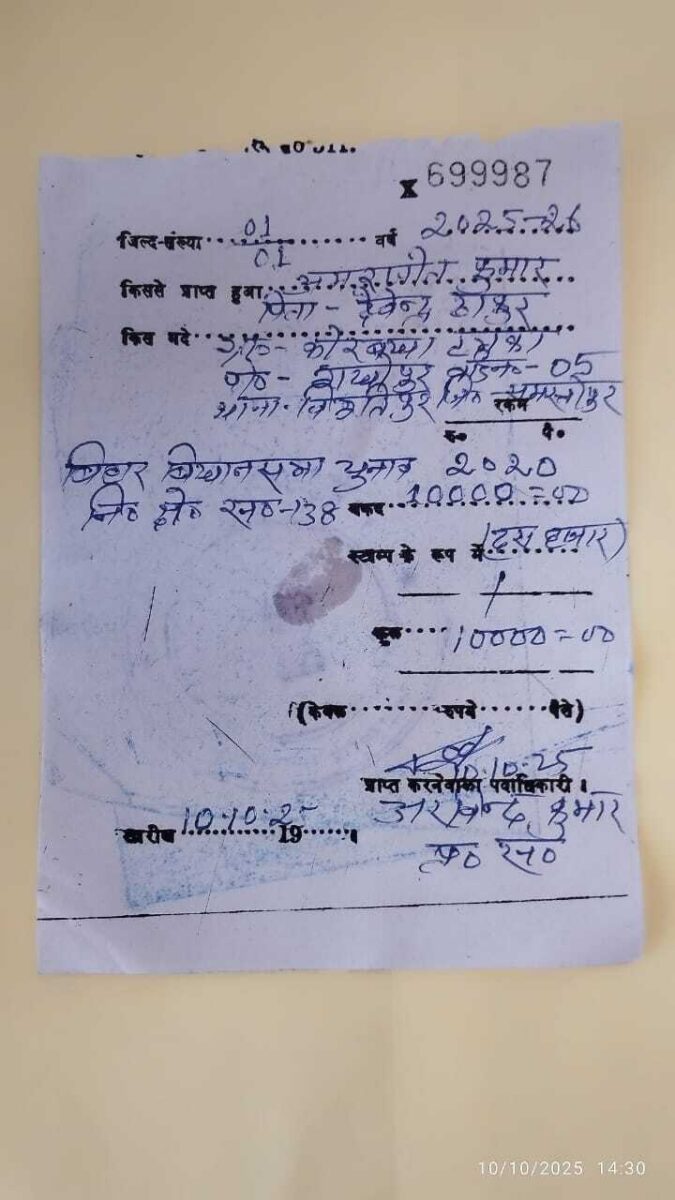 X 699987
जिल्द-संख्या 01/01 वर्ष 2025-26
किससे प्राप्त हुआ कुमार
पिता - देवेन्द्र ठाकुर
किस मदे ग्रा०-
पो०- वार्ड न०- 05
थाना- जि० समस्तीपुर
रकम
रु० पै०
बिहार विधानसभा चुनाव 2020
नि० क्षे० सं०-138 नकद 10000=00
स्टाम्प के रूप में (दस हजार)
कुल 10000=00
(केवल रुपये पैसे)
10.10.25
प्राप्त करनेवाला पदाधिकारी ।
अरविन्द कुमार
तारीख 10.10.2 19 ।
10/10/2025 14:30